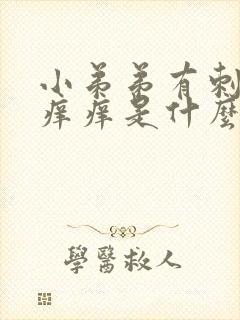 小弟弟有刺
痒痒是什麼
學醫救人